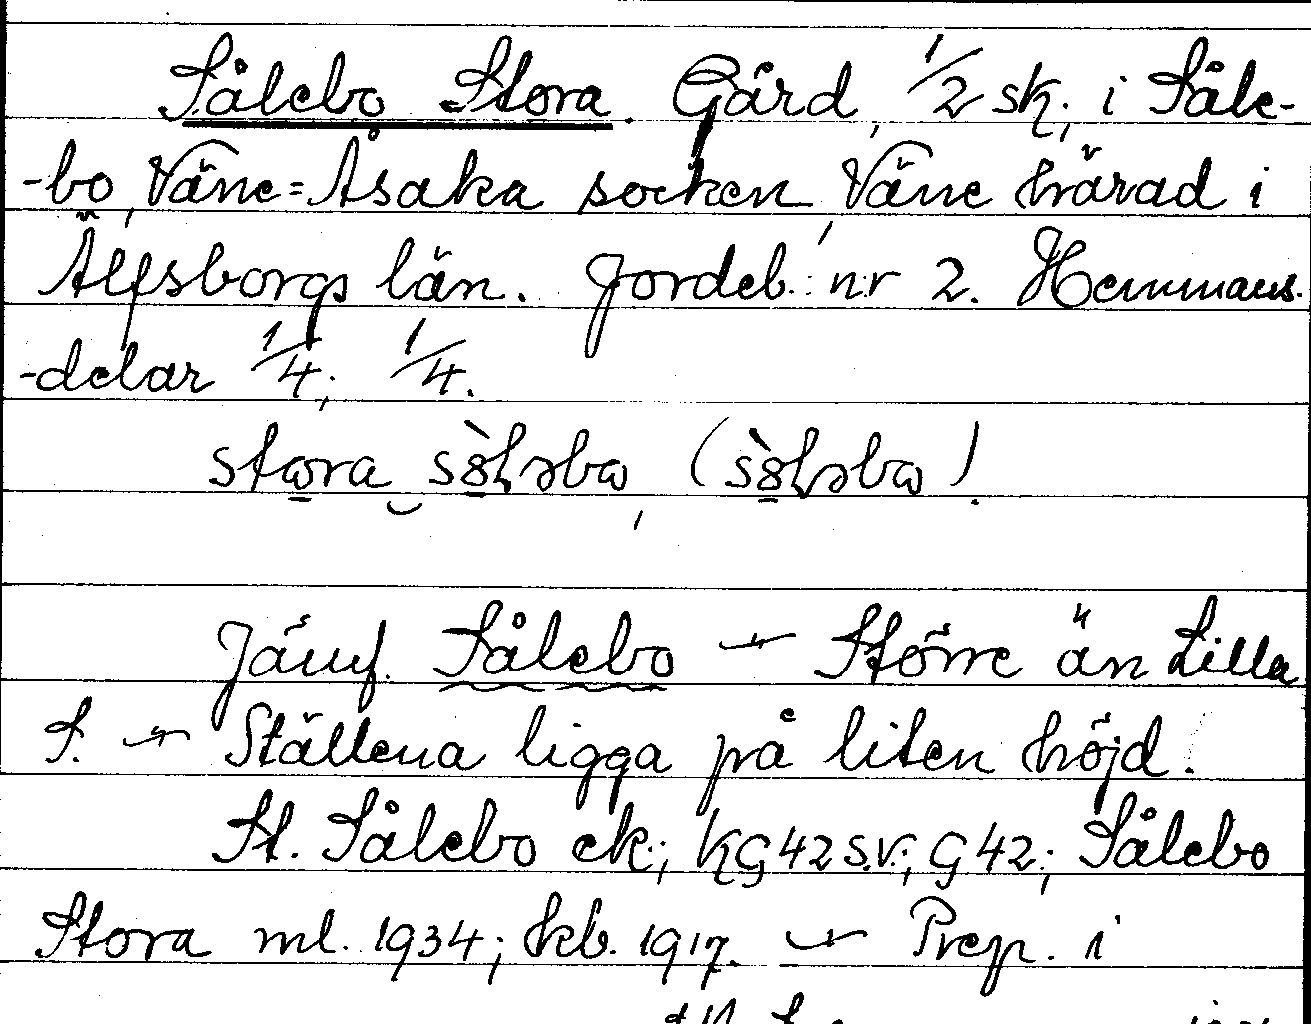 Sålebo Stora. Gård, 1/2 sk., i Såle-
-bo, Väne=Åsaka socken, Väne härad i
Älfsborgs län. Jordeb. nr 2. Hemmans-
-delar 1/4; 1/4.
stora
Jämf. Sålebo — Större än Lilla
S. — Ställena ligga på liten höjd.
St. Sålebo ek.; KG42s.v.; G42; Sålebo
Stora ml. 1934; kb. 1917. — Prep. i